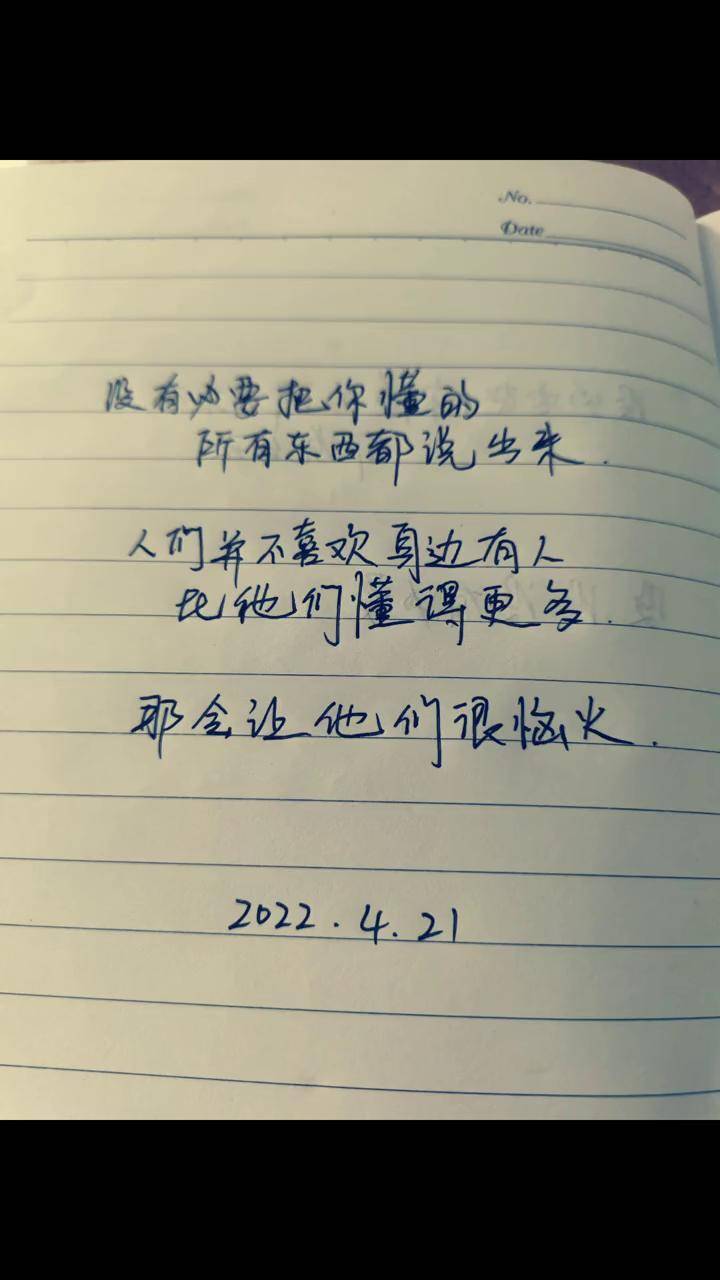 No.
Date
没有必要把你懂的
所有东西都说出来.
人们并不喜欢身边有人
比他们懂得更多.
那会让他们很恼火.
2022.4.21